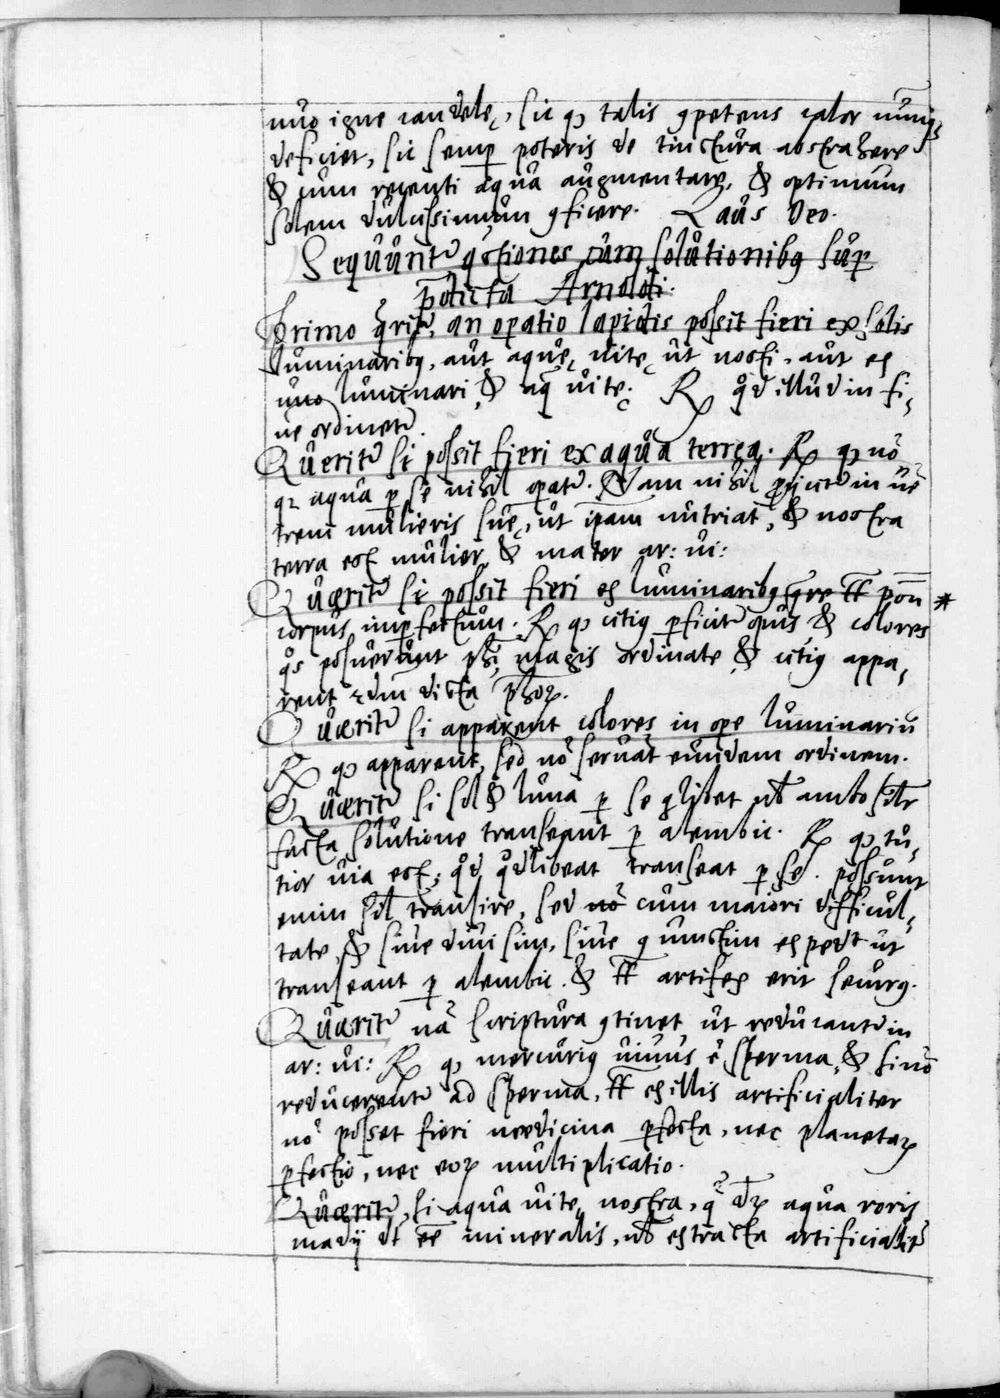 nuo igne candelę, sic qꝫ talis ꝯpetens calor
deficiet, sic semꝑ poteris de tinctura abstrahere
& cum recenti aqua augmentare, & optimum
solem dulcissimum ꝯficere. Laus Deo.
Sequunt᷑ qstiones cum solutionibꝰ suꝑ
p̄dicta Arnoldi.
Primo qrit᷑, an oꝑatio lapidis possit fieri ex solis
luminaribꝰ, aut aquę vitę ut nosti, aut ex
uno luminari & aq̄ vitę. ℞ qd illud in fi,
ne ordinet᷑.
Querit᷑ si possit fieri ex aqua terrea. ℞ qꝫ nō
qꝛ aqua ꝑ se nihil oꝑat᷑. Nam nihil ꝓijcit᷑ in vē
trem mulieris suę, ut ip̄am nutriat, & nostra
terra est mulier & mater ar: vi:
Quærit᷑ si possit fieri ex luminaribꝰ *
corpus imꝑfectum. ℞ qꝫ citiꝰ ꝑficit᷑ opus & colores
qs posuerunt ph̄i, magis ordinate & citiꝰ appa,
rent scdm dicta ph̄oꝝ.
Quærit᷑ si apparent colores in oꝑe luminariū
℞ qꝫ apparent, sed nō servāt eundem ordinem.
Quærit᷑ si sol & luna ꝑ se qlibet vl ambo silr
facta solutione transeant ꝑ alembic. ℞ qꝫ tu,
tior via est, qd qdlibeat transeat ꝑ se. possunt
enim sil transire, sed nō cum maiori difficul,
tate, & sive divisim, sive ꝯiunctim expedit ut
transeant ꝑ alembic. & tc̄ artifex erit securꝰ.
Quærit᷑ nā scriptura ꝯtinet ut reducant᷑ in
ar: vi: ℞ qꝫ mercuriꝰ vivus ē sperma, & si nō
reducerent᷑ ad sperma, tc̄ ex illis artificialiter
nō posset fieri medicina ꝑfecta, nec planetaꝝ
ꝑfectio, nec eoꝝ multiplicatio.
Quærit᷑, si aqua vitę nostra, q̄ dꝝ aqua roris
madij dt ēē mineralis, vl extracta artificialit᷑